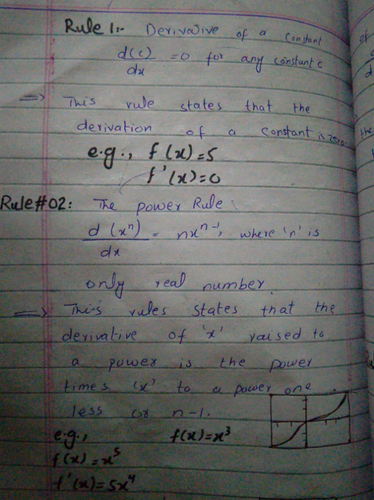 Rule 1:- Derivative of a constant
d(c)/dx = 0 for any constant c
=> This rule states that the
derivation of a constant is zero
e.g., f(x)=5
f'(x)=0
Rule#02: The power Rule
d(xⁿ)/dx = nxⁿ⁻¹, where 'n' is
only real number.
=> This rules states that the
derivative of 'x' raised to
a power is the power
times 'x' to a power one
less or n-1.
e.g., f(x)=x³
f(x)=x⁵
f'(x)=5x⁴